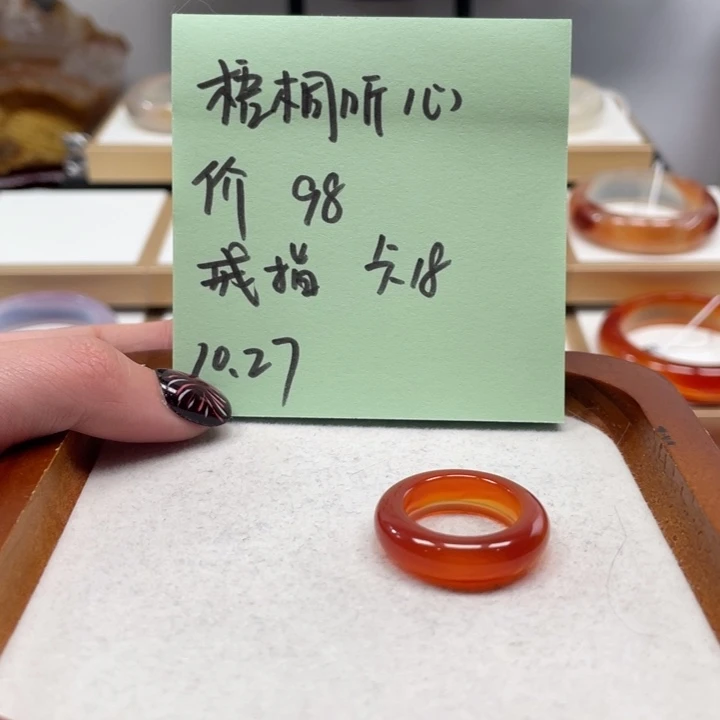 梧桐听心
价 98
戒指 卡18
10.27